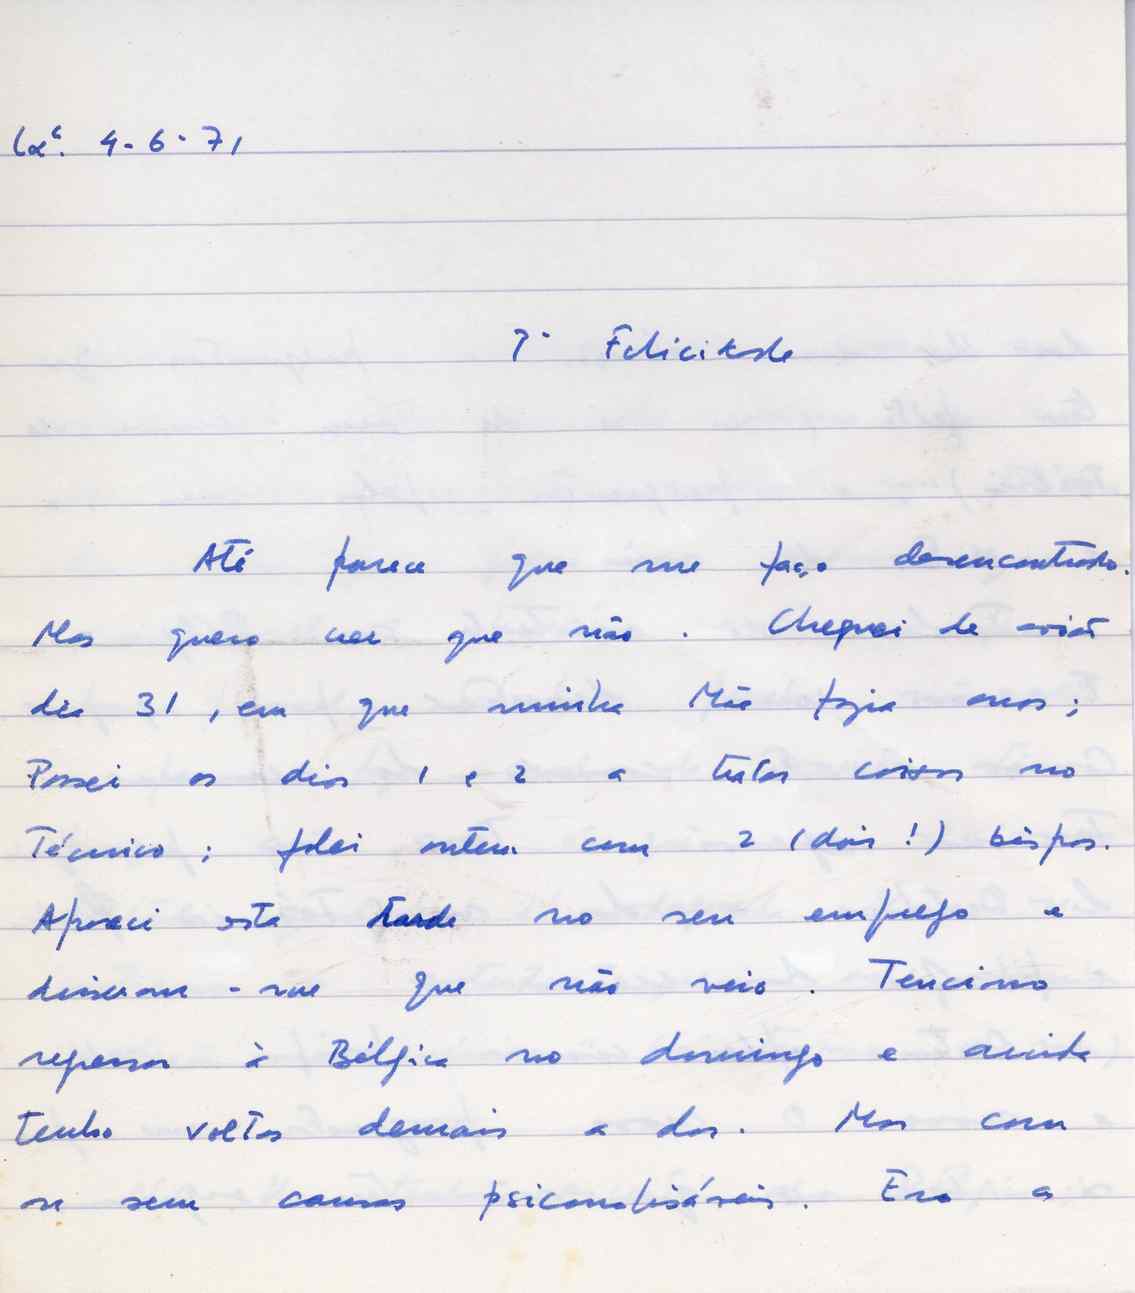 Lxª. 4-6-71
Felicidade
Até parece que me faço desencontrado.
Mas quero crer que não. Cheguei de avião
dia 31, em que minha Mãe fazia anos;
Passei os dias 1 e 2 a tratar coisas no
Técnico; falei ontem com 2 (dois!) bispos.
Apareci esta tarde no seu emprego e
disseram-me que não veio. Tenciono
regressar à Bélgica no domingo e ainda
tenho voltas demais a dar. Mas com
ou sem causas psicanalisáveis. Era a